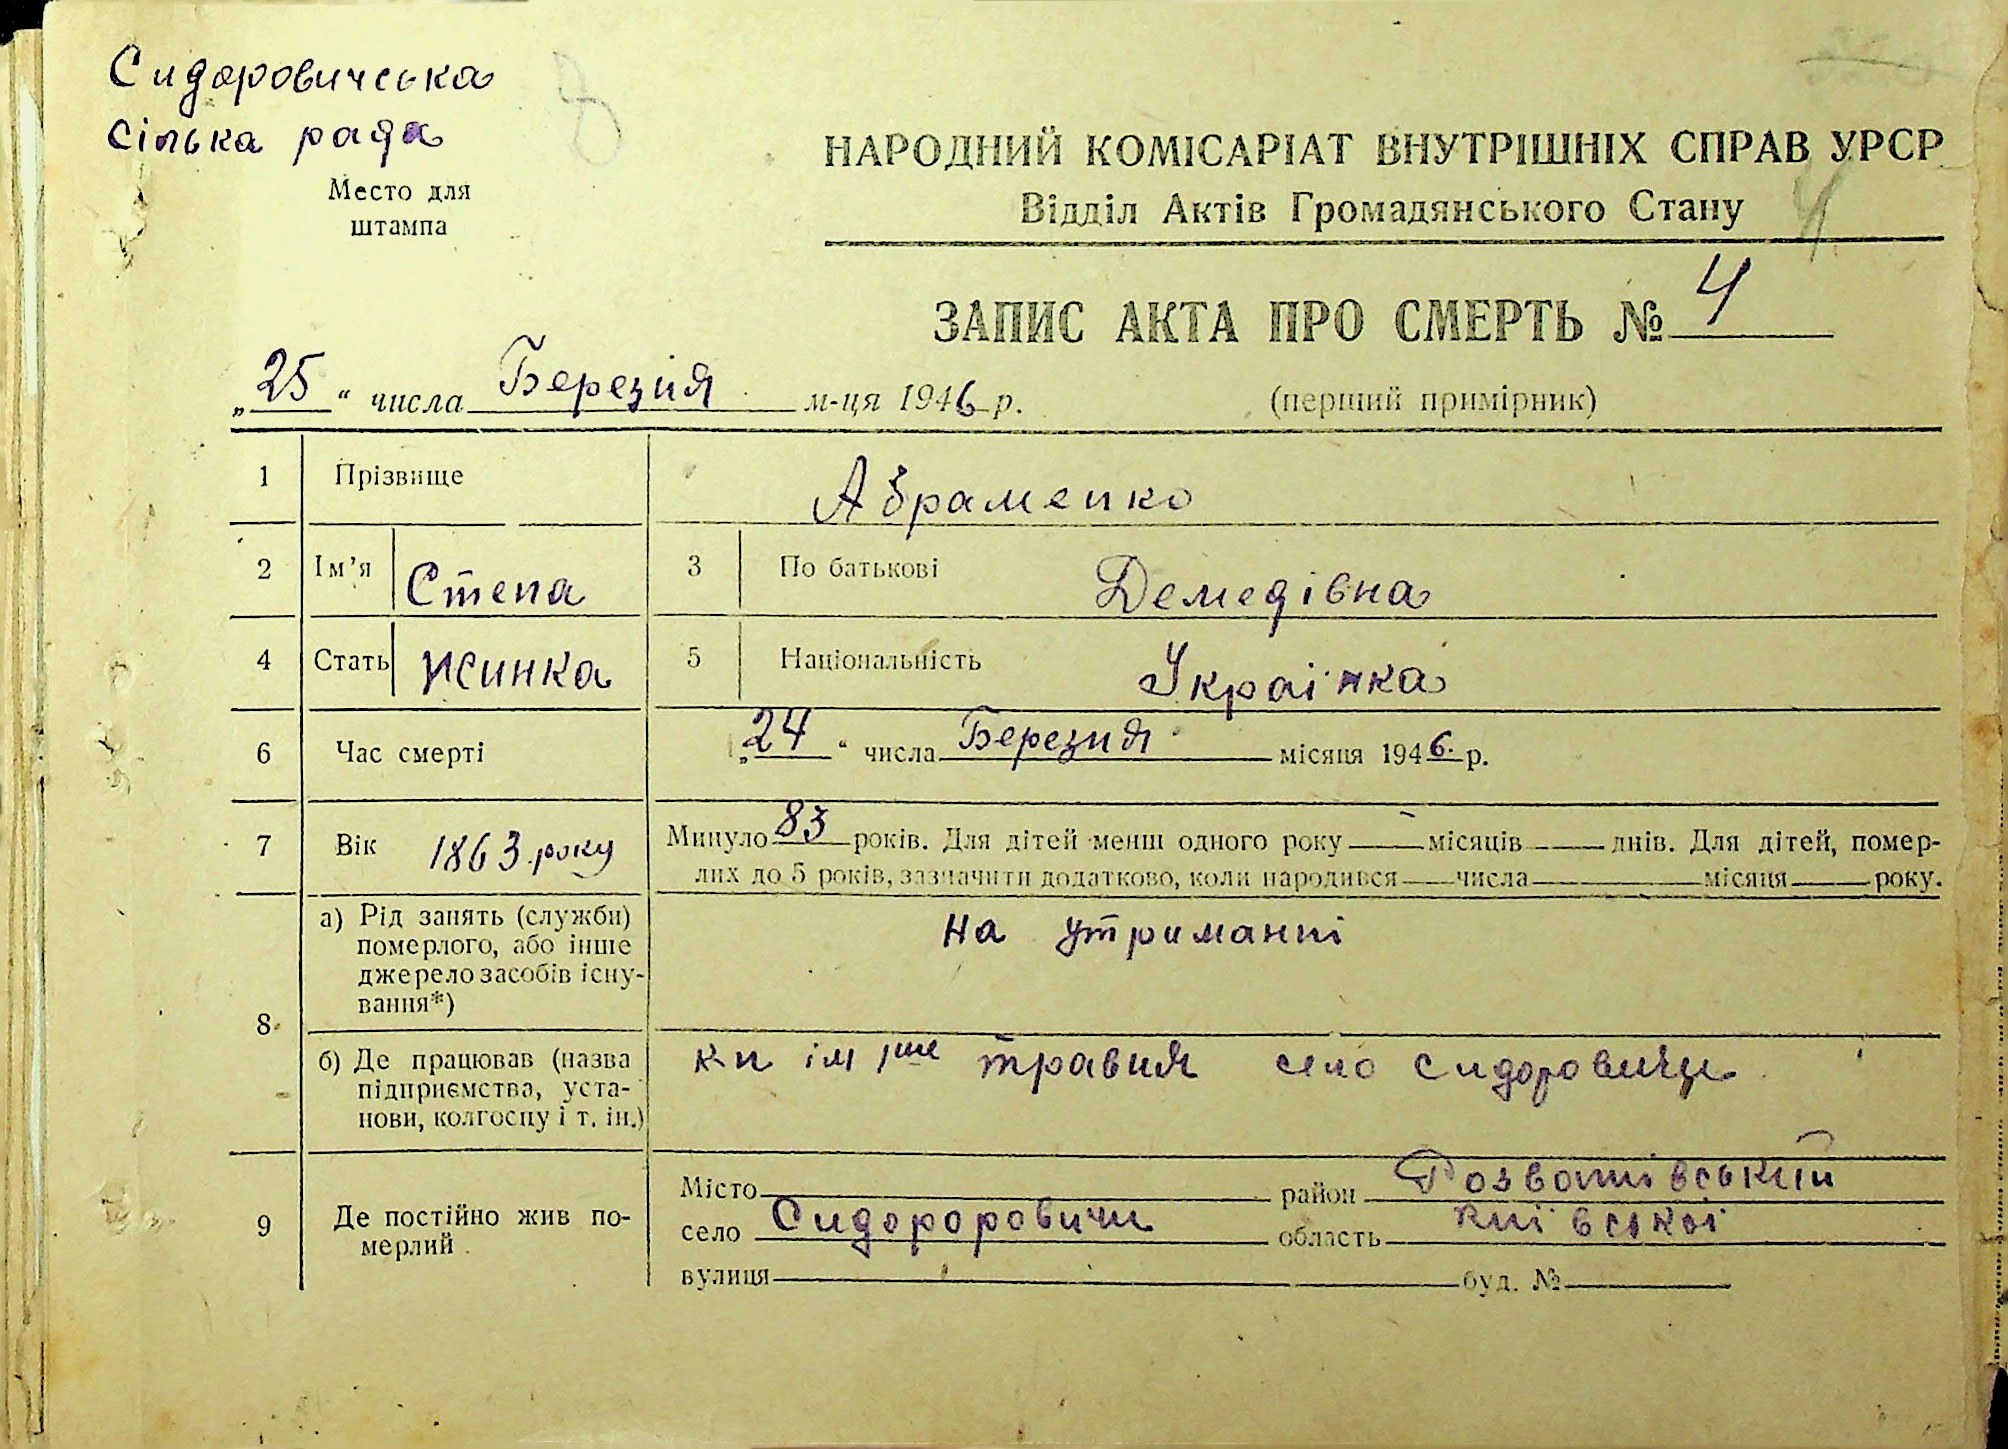 Сидоровичська
сілька рада
Место для
штампа
НАРОДНИЙ КОМІСАРІАТ ВНУТРІШНІХ СПРАВ УРСР
Відділ Актів Громадянського Стану
4
ЗАПИС АКТА ПРО СМЕРТЬ № 4
„25“ числа Березня м-ця 1946 р.
(перший примірник)
1 Прізвище Абраменко
2 Ім’я Степа 3 По батькові Демедівна
4 Стать жинка 5 Національність Українка
6 Час смерті „24“ числа Березня місяця 1946. р.
7 Вік 1863 року Минуло 83 років. Для дітей менш одного року — місяців — днів. Для дітей, помер-
лих до 5 років, зазначити додатково, коли народився — числа — місяця — року.
8 а) Рід занять (служби)
померлого, або інше
джерело засобів існу-
вання*)
на утриманні
б) Де працював (назва
підприємства, уста-
нови, колгоспу і т. ін.)
кп ім 1ше травня село Сидоровичи
9 Де постійно жив по-
мерлий
Місто район Розважівський
село Сидороровичи область київської
вулиця буд. №